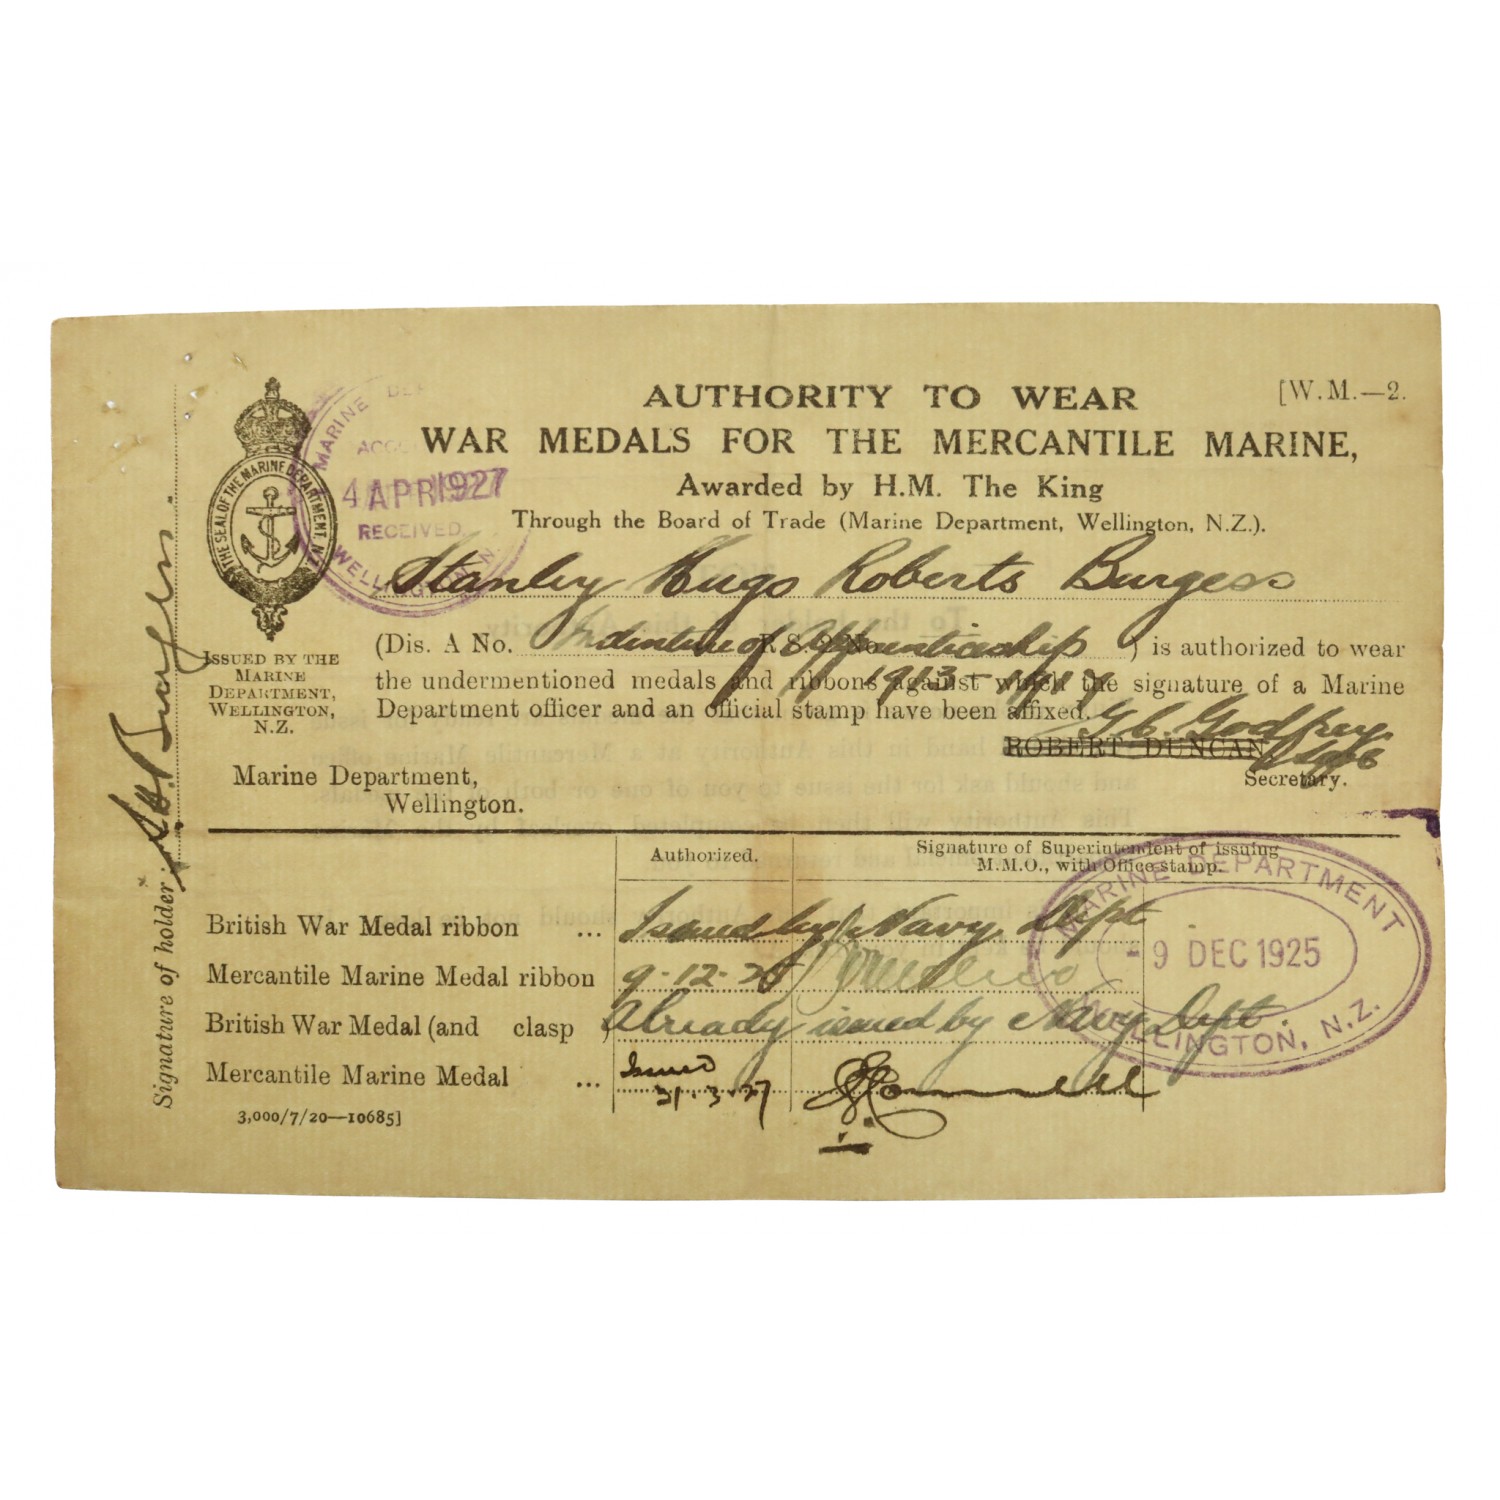 [W.M.—2.
AUTHORITY TO WEAR
WAR MEDALS FOR THE MERCANTILE MARINE,
Awarded by H.M. The King
Through the Board of Trade (Marine Department, Wellington, N.Z.).
THE SEAL OF THE MARINE DEPARTMENT, N.Z.
MARINE
4 APR 1927
RECEIVED
WELLINGTON, N.
Stanley Hugo Roberts Burgess
(Dis. A No. Indenture of R.S. 2 No. Apprenticeship ) is authorized to wear
the undermentioned medals and ribbons against which the signature of a Marine
1913-
Department officer and an official stamp have been affixed.
G.C. Godfrey.
ROBERT DUNCAN
Secretary.
ISSUED BY THE
MARINE
DEPARTMENT,
WELLINGTON,
N.Z.
Marine Department,
Wellington.
Signature of holder: Burgess.
Authorized.
Signature of Superintendent of issuing
M.M.O., with Office stamp.
British War Medal ribbon ... Issued by Navy Dept
Mercantile Marine Medal ribbon 9-12-25
British War Medal (and clasp ) Already issued by Navy Dept.
Mercantile Marine Medal ... Issued
31.3.27
MARINE DEPARTMENT
-9 DEC 1925
WELLINGTON, N.Z.
3,000/7/20—10685]